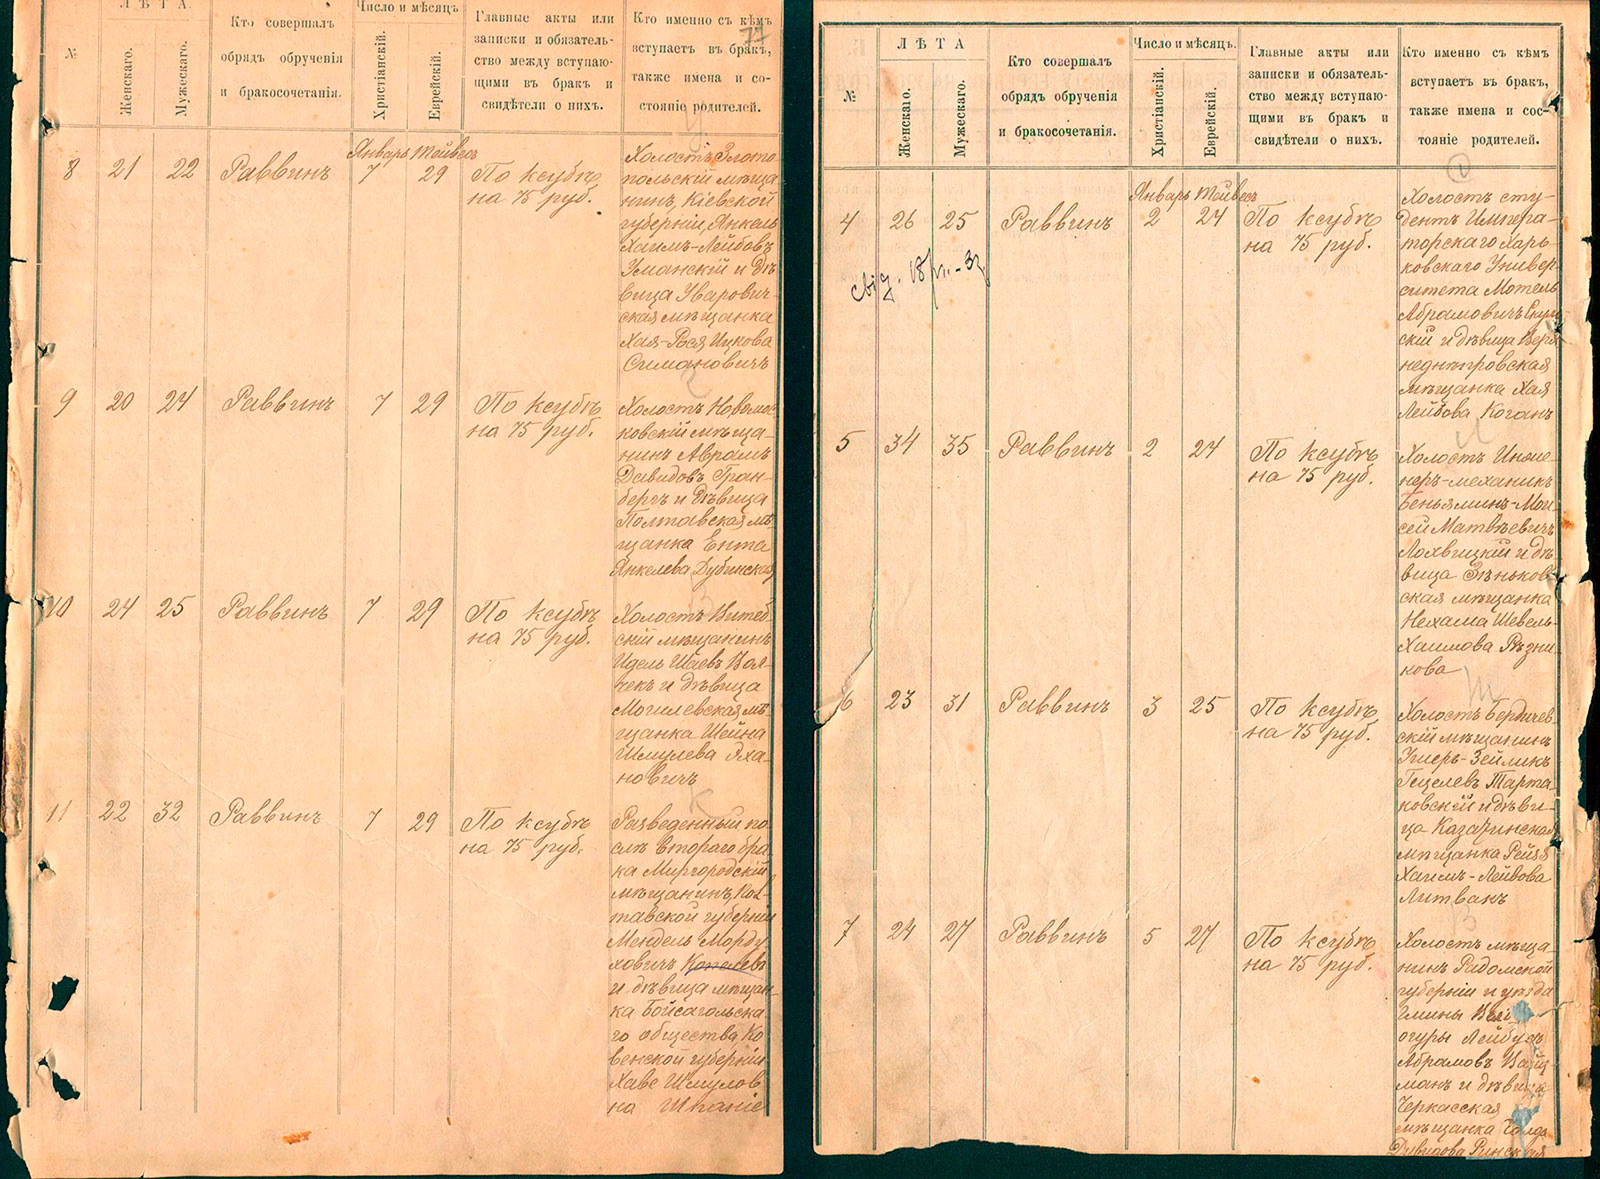 77
№
ЛѢТА.
Женскаго.
Мужескаго.
Кто совершалъ
обрядъ обрученія
и бракосочетанія.
Число и мѣсяцъ
Христіанскій.
Еврейскій.
Главные акты или
записки и обязатель-
ство между вступаю-
щими въ бракъ и
свидѣтели о нихъ.
Кто именно съ кѣмъ
вступаетъ въ бракъ,
также имена и со-
стояніе родителей.
Январь Тейвесъ
8 21 22 Раввинъ 7 29 По ксубѣ
на 75 руб.
Холостъ Злото-
польскій мѣща
нинъ, Кіевской
губерніи, Янкель
Хаимъ-Лейбовъ
Уманскій и дѣ
вица Уварович-
ская мѣщанка
Хая-Рося Ицкова
Симановичъ
9 20 24 Раввинъ 7 29 По ксубѣ
на 75 руб.
Холостъ Новомос
ковскій мѣща-
нинъ Аврамъ
Давидовъ Гран-
бергъ и дѣвица
Полтавская мѣ
щанка Ента
Янкелева Дубинская
10 24 25 Раввинъ 7 29 По ксубѣ
на 75 руб.
Холостъ Витеб-
скій мѣщанинъ
Идель Шаевъ Вол-
чекъ и дѣвица
Могилевская мѣ-
щанка Шейна
Шмулева Оха
новичъ
11 22 32 Раввинъ 7 29 По ксубѣ
на 75 руб.
Разведенный по
слѣ втораго бра-
ка Миргородскій
мѣщанинъ, Пол-
тавской губерніи
Мендель Морду
ховичъ Копелевъ
и дѣвица мѣщан-
ка Бойсагольска
го общества, Ко
венской губерніи
Хаве Шмулов
на Шпаніе
№
ЛѢТА
Женскаго.
Мужескаго.
Кто совершалъ
обрядъ обрученія
и бракосочетанія.
Число и мѣсяцъ.
Христіанскій.
Еврейскій.
Главные акты или
записки и обязатель-
ство между вступаю-
щими въ бракъ и
свидѣтели о нихъ.
Кто именно съ кѣмъ
вступаетъ въ бракъ,
также имена и сос-
тояніе родителей.
Январь Тейвесъ
4 26 25 Раввинъ 2 24 По ксубѣ
на 75 руб.
свід.
Холостъ сту-
дентъ Импера-
торскаго Харь-
ковскаго Универ-
ситета Мотель
Абрамовичъ
скій и дѣвица Верх
неднѣпровская
мѣщанка Хая
Лейбова Коганъ
5 34 35 Раввинъ 2 24 По ксубѣ
на 75 руб.
Холостъ Инже-
неръ-механикъ
Беньяминъ-Мои-
сей Матвѣевичъ
Лохвицкій и дѣ
вица Зѣньков-
ская мѣщанка
Нехама Шевель-
Хаимова Рѣзни
кова
6 23 31 Раввинъ 3 25 По ксубѣ
на 75 руб.
Холостъ Бердичев
скій мѣщанинъ
Ушеръ-Зейликъ
Гецелевъ Тарта
ковскій и дѣви-
ца Казатинская
мѣщанка Рейзя
Хаимъ-Лейбова
Литвакъ
7 24 27 Раввинъ 5 27 По ксубѣ
на 75 руб.
Холостъ мѣща
нинъ Радомской
губерніи и уѣзда
гмины
огуры Лейбусъ
Абрамовъ Вайц
манъ и дѣвица
Черкасская
мѣщанка Голда
Давидова Ринская